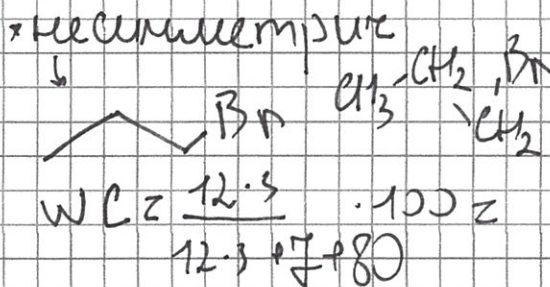 *несимметрич
CH3 CH2 CH2 Br
Br
WC = 12·3 / 12·3+7+80 ·100 =